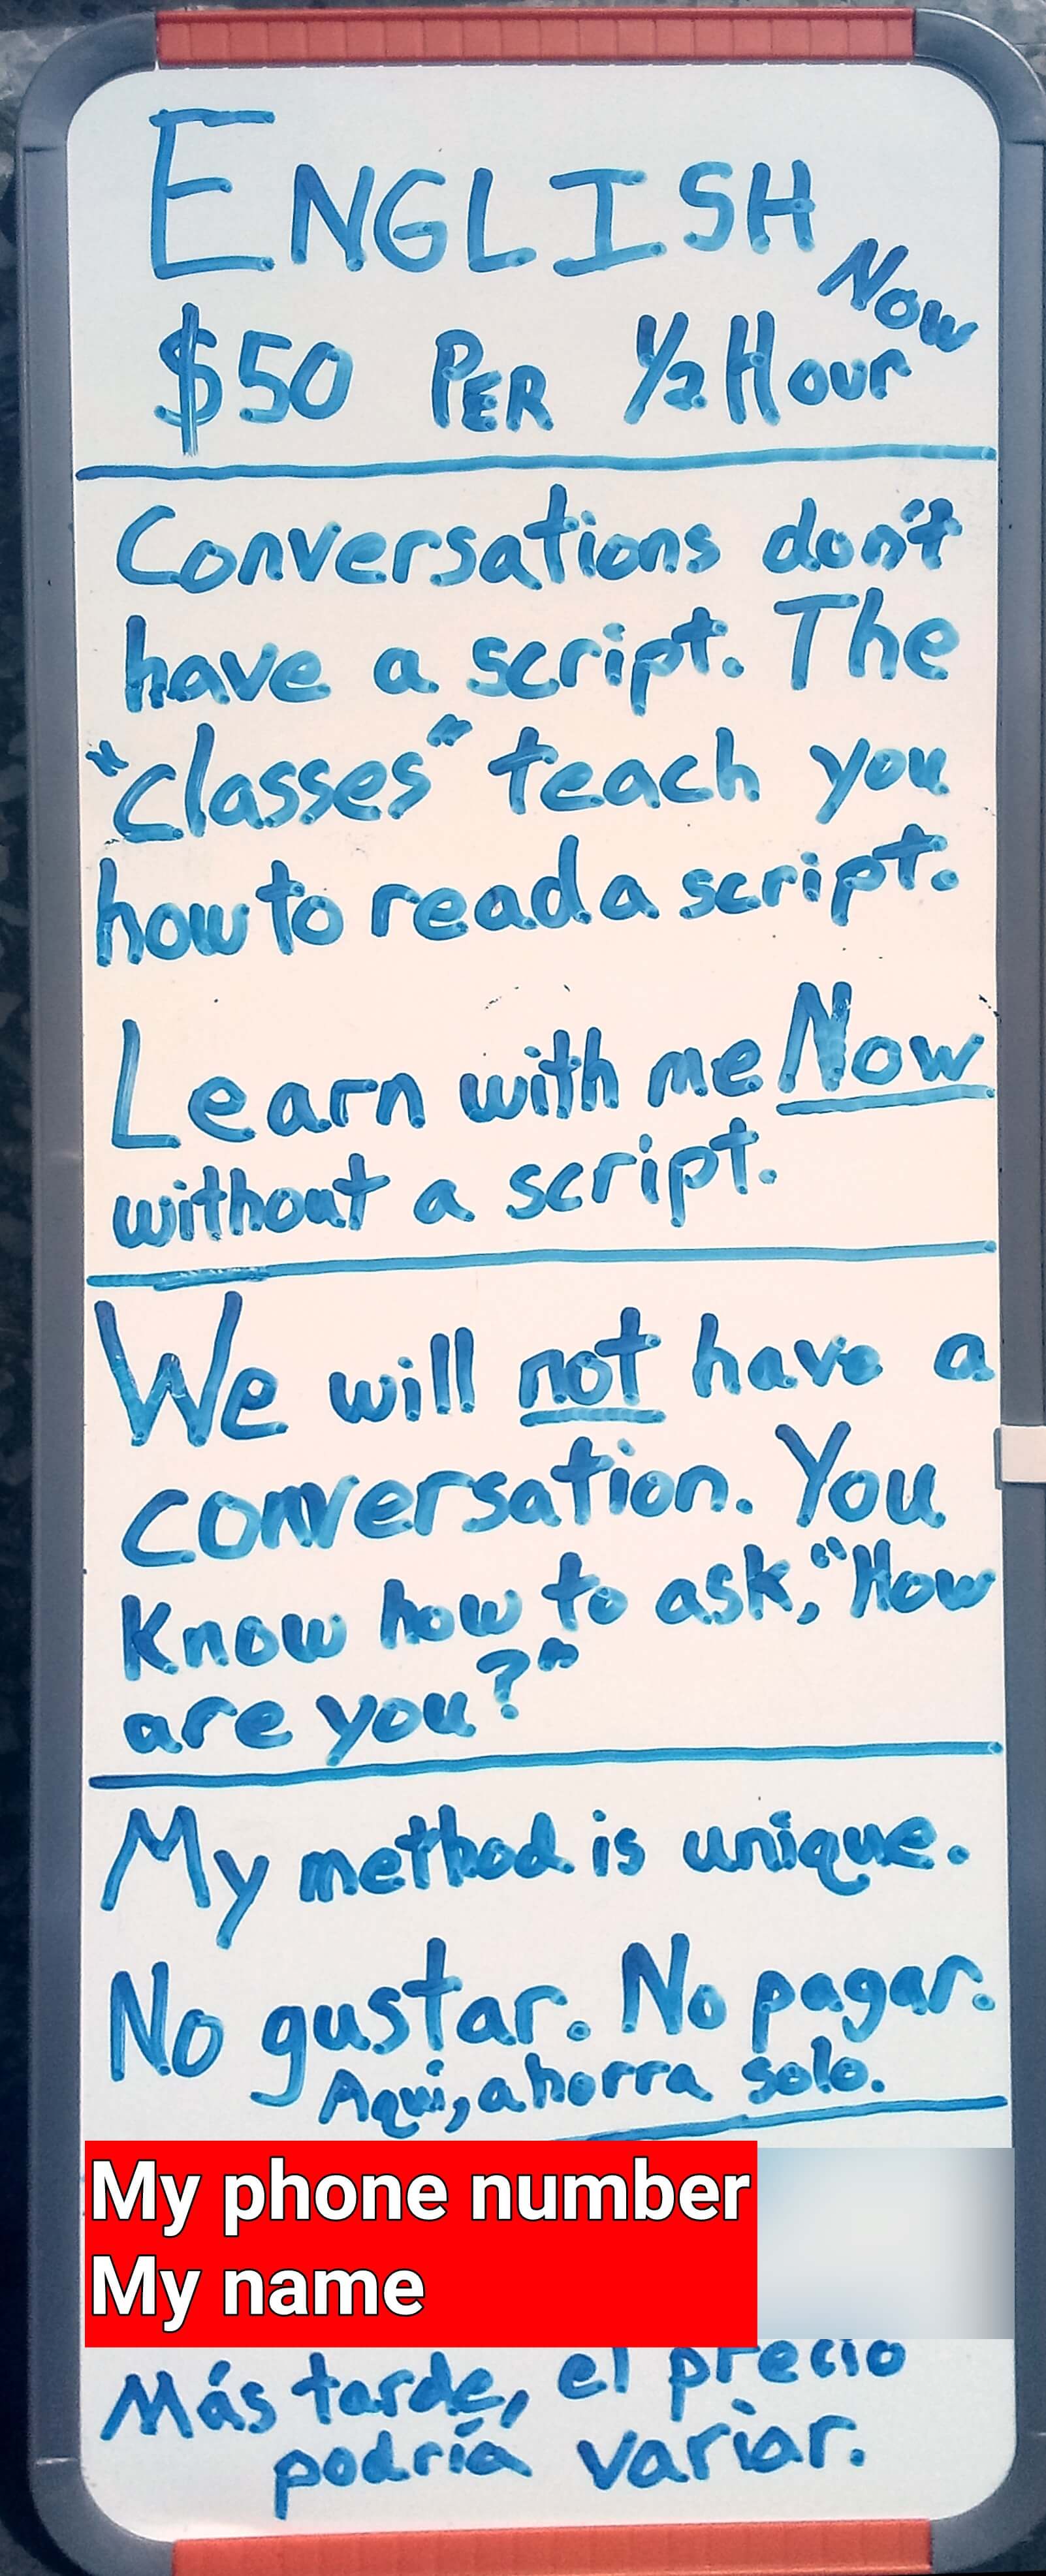 ENGLISH
Now
$50 PER ½ Hour
Conversations don't
have a script. The
"classes" teach you
how to read a script.
Learn with me Now
without a script.
We will not have a
conversation. You
Know how to ask, "How
are you?"
My method is unique.
No gustar. No pagar.
Aqui, ahorra solo.
My phone number
My name
Más tarde, el precio
podría variar.